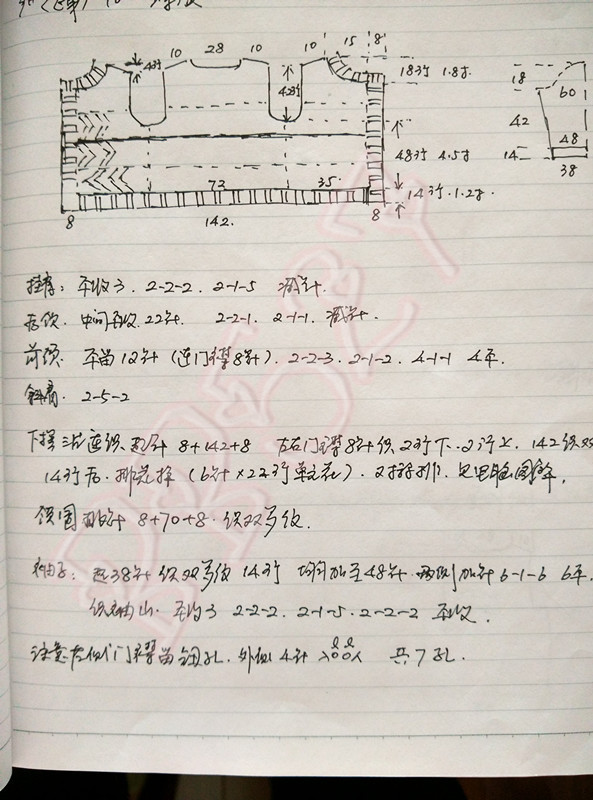 10 28 10 10 15 8
4行 42行
18行 1.8寸
48行 4.5寸
73 35
14行 1.2寸
8 142. 8
18 60
42
48
14
38
挂肩: 平收3. 2-2-2. 2-1-5 减针.
后领. 中间平收22针. 2-2-1. 2-1-1. 减针.
前领: 平留12针(连门襟8针). 2-2-3. 2-1-2. 4-1-1 4平.
斜肩. 2-5-2
下摆三片连织. 起针 8+142+8 左右门襟8针织2行下.2行上. 142织双
14行后. 排花样 (6针×22行单元花). 对称排. 见电脑图解.
领圈 挑针 8+70+8. 织双罗纹.
袖子: 起38针织双罗纹14行 均加至48针. 两侧加针6-1-6 6平.
织袖山. 平收3 2-2-2. 2-1-5. 2-2-2 平收.
注意左侧门襟留钮孔. 外侧4针 共7孔.